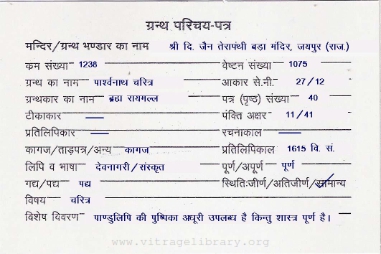 ग्रन्थ परिचय-पत्र
मन्दिर/ग्रन्थ भण्डार का नाम श्री दि. जैन तेरापंथी बडा मंदिर, जयपुर (राज.)
क्रम संख्या 1238 वेष्टन संख्या 1075
ग्रन्थ का नाम पार्श्वनाथ चरित्र आकार से.मी. 27/12
ग्रन्थकार का नाम ब्रह्म रायमल्ल पत्र (पृष्ठ) संख्या 40
टीकाकार — पंक्ति अक्षर 11/41
प्रतिलिपिकार — रचनाकाल —
कागज/ताड़पत्र/अन्य कागज प्रतिलिपिकाल 1615 वि. सं.
लिपि व भाषा देवनागरी/संस्कृत पूर्ण/अपूर्ण पूर्ण
गद्य/पद्य पद्य स्थिति:जीर्ण/अतिजीर्ण/सामान्य
विषय चरित्र
विशेष विवरण पाण्डुलिपि की पुष्पिका अधूरी उपलब्ध है किन्तु शास्त्र पूर्ण है।
www.vitragelibrary.org